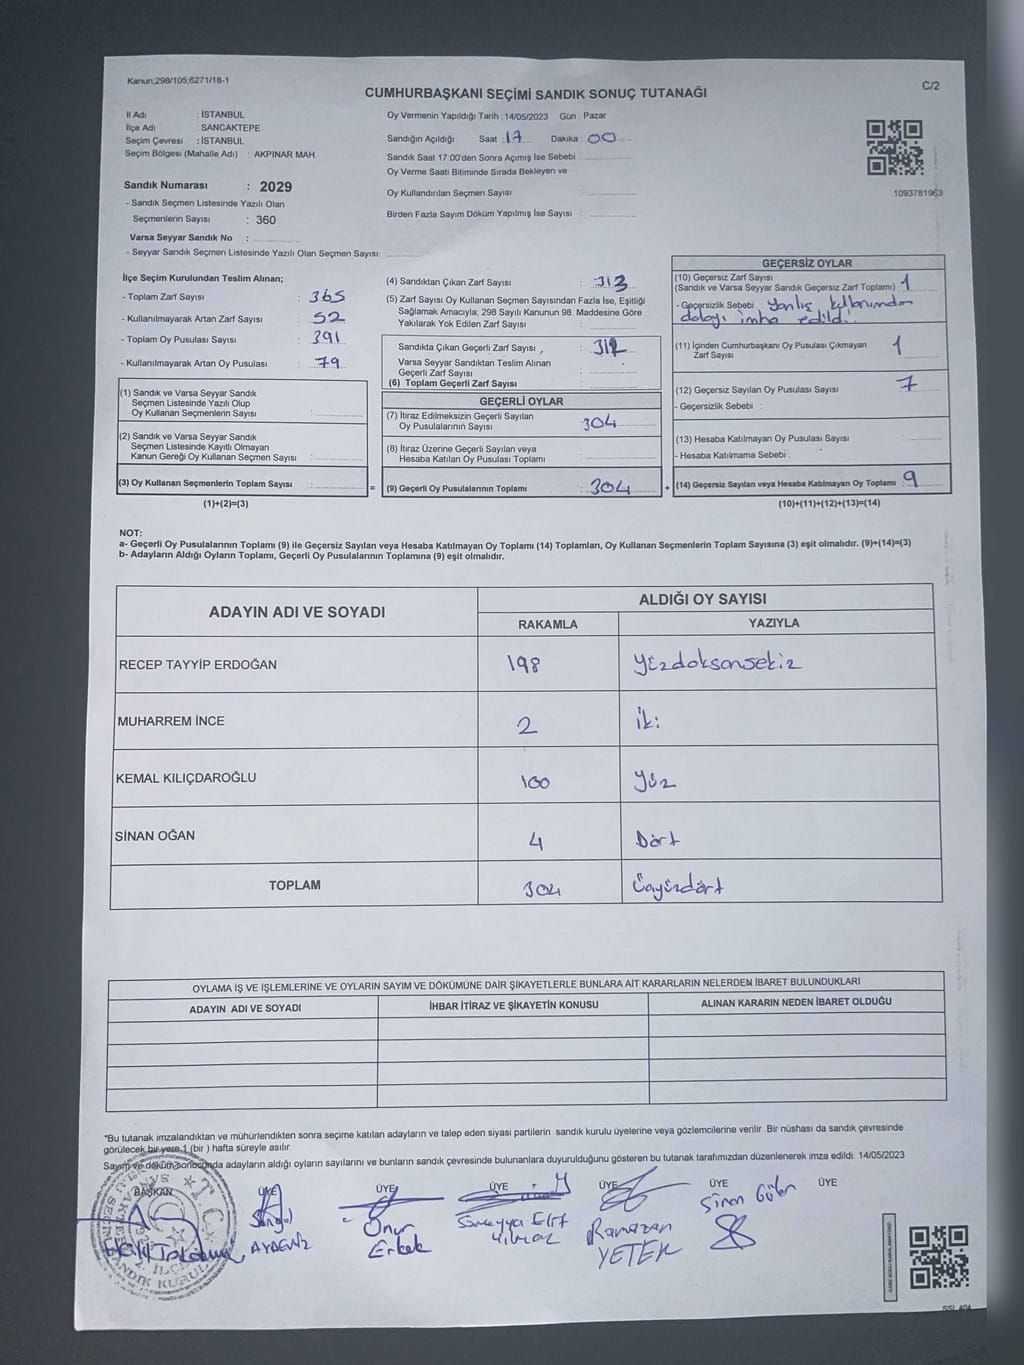 Kanun;298/105;6271/18-1
C/2
CUMHURBAŞKANI SEÇİMİ SANDIK SONUÇ TUTANAĞI
İl Adı : İSTANBUL
İlçe Adı : SANCAKTEPE
Seçim Çevresi : İSTANBUL
Seçim Bölgesi (Mahalle Adı) : AKPINAR MAH.
Sandık Numarası : 2029
- Sandık Seçmen Listesinde Yazılı Olan
Seçmenlerin Sayısı : 360
Varsa Seyyar Sandık No :
- Seyyar Sandık Seçmen Listesinde Yazılı Olan Seçmen Sayısı:
Oy Vermenin Yapıldığı Tarih : 14/05/2023 Gün : Pazar
Sandığın Açıldığı Saat : 17 Dakika : 00
Sandık Saat 17:00'den Sonra Açımış İse Sebebi
Oy Verme Saati Bitiminde Sırada Bekleyen ve
Oy Kullandırılan Seçmen Sayısı :
Birden Fazla Sayım Döküm Yapılmış İse Sayısı :
1093781963
İlçe Seçim Kurulundan Teslim Alınan;
- Toplam Zarf Sayısı : 365
- Kullanılmayarak Artan Zarf Sayısı : 52
- Toplam Oy Pusulası Sayısı : 391
- Kullanılmayarak Artan Oy Pusulası : 79
(1) Sandık ve Varsa Seyyar Sandık
Seçmen Listesinde Yazılı Olup
Oy Kullanan Seçmenlerin Sayısı :
(2) Sandık ve Varsa Seyyar Sandık
Seçmen Listesinde Kayıtlı Olmayan
Kanun Gereği Oy Kullanan Seçmen Sayısı :
(3) Oy Kullanan Seçmenlerin Toplam Sayısı :
(1)+(2)=(3)
=
(4) Sandıktan Çıkan Zarf Sayısı : 313
(5) Zarf Sayısı Oy Kullanan Seçmen Sayısından Fazla İse, Eşitliği
Sağlamak Amacıyla; 298 Sayılı Kanunun 98. Maddesine Göre
Yakılarak Yok Edilen Zarf Sayısı :
Sandıkta Çıkan Geçerli Zarf Sayısı : 312
Varsa Seyyar Sandıktan Teslim Alınan
Geçerli Zarf Sayısı :
(6) Toplam Geçerli Zarf Sayısı :
GEÇERLİ OYLAR
(7) İtiraz Edilmeksizin Geçerli Sayılan
Oy Pusulalarının Sayısı : 304
(8) İtiraz Üzerine Geçerli Sayılan veya
Hesaba Katılan Oy Pusulası Toplamı :
(9) Geçerli Oy Pusulalarının Toplamı : 304
+
GEÇERSİZ OYLAR
(10) Geçersiz Zarf Sayısı
(Sandık ve Varsa Seyyar Sandık Geçersiz Zarf Toplamı) : 1
- Geçersizlik Sebebi : Yanlış kullanımdan
dolayı imha edildi.
(11) İçinden Cumhurbaşkanı Oy Pusulası Çıkmayan 1
Zarf Sayısı
(12) Geçersiz Sayılan Oy Pusulası Sayısı 7
- Geçersizlik Sebebi :
(13) Hesaba Katılmayan Oy Pusulası Sayısı :
- Hesaba Katılmama Sebebi :
(14) Geçersiz Sayılan veya Hesaba Katılmayan Oy Toplamı : 9
(10)+(11)+(12)+(13)=(14)
NOT:
a- Geçerli Oy Pusulalarının Toplamı (9) ile Geçersiz Sayılan veya Hesaba Katılmayan Oy Toplamı (14) Toplamları, Oy Kullanan Seçmenlerin Toplam Sayısına (3) eşit olmalıdır. (9)+(14)=(3)
b- Adayların Aldığı Oyların Toplamı, Geçerli Oy Pusulalarının Toplamına (9) eşit olmalıdır.
ADAYIN ADI VE SOYADI
ALDIĞI OY SAYISI
RAKAMLA YAZIYLA
RECEP TAYYİP ERDOĞAN 198 Yüzdoksansekiz
MUHARREM İNCE 2 iki
KEMAL KILIÇDAROĞLU 100 Yüz
SİNAN OĞAN 4 Dört
TOPLAM 304 Üçyüzdört
OYLAMA İŞ VE İŞLEMLERİNE VE OYLARIN SAYIM VE DÖKÜMÜNE DAİR ŞİKAYETLERLE BUNLARA AİT KARARLARIN NELERDEN İBARET BULUNDUKLARI
ADAYIN ADI VE SOYADI İHBAR İTİRAZ VE ŞİKAYETİN KONUSU ALINAN KARARIN NEDEN İBARET OLDUĞU
*Bu tutanak imzalandıktan ve mühürlendikten sonra seçime katılan adayların ve talep eden siyasi partilerin sandık kurulu üyelerine veya gözlemcilerine verilir. Bir nüshası da sandık çevresinde
görülecek bir yere 1 (bir ) hafta süreyle asılır
Sayım ve döküm sonucunda adayların aldığı oyların sayılarını ve bunların sandık çevresinde bulunanlara duyurulduğunu gösteren bu tutanak tarafımızdan düzenlenerek imza edildi. 14/05/2023
BAŞKAN ÜYE ÜYE ÜYE ÜYE ÜYE ÜYE
Songül AYDENİZ
Onur Erkek
Sümeyya Elif Yılmaz
Ramazan YETEK
Sinan Güler
T.C.